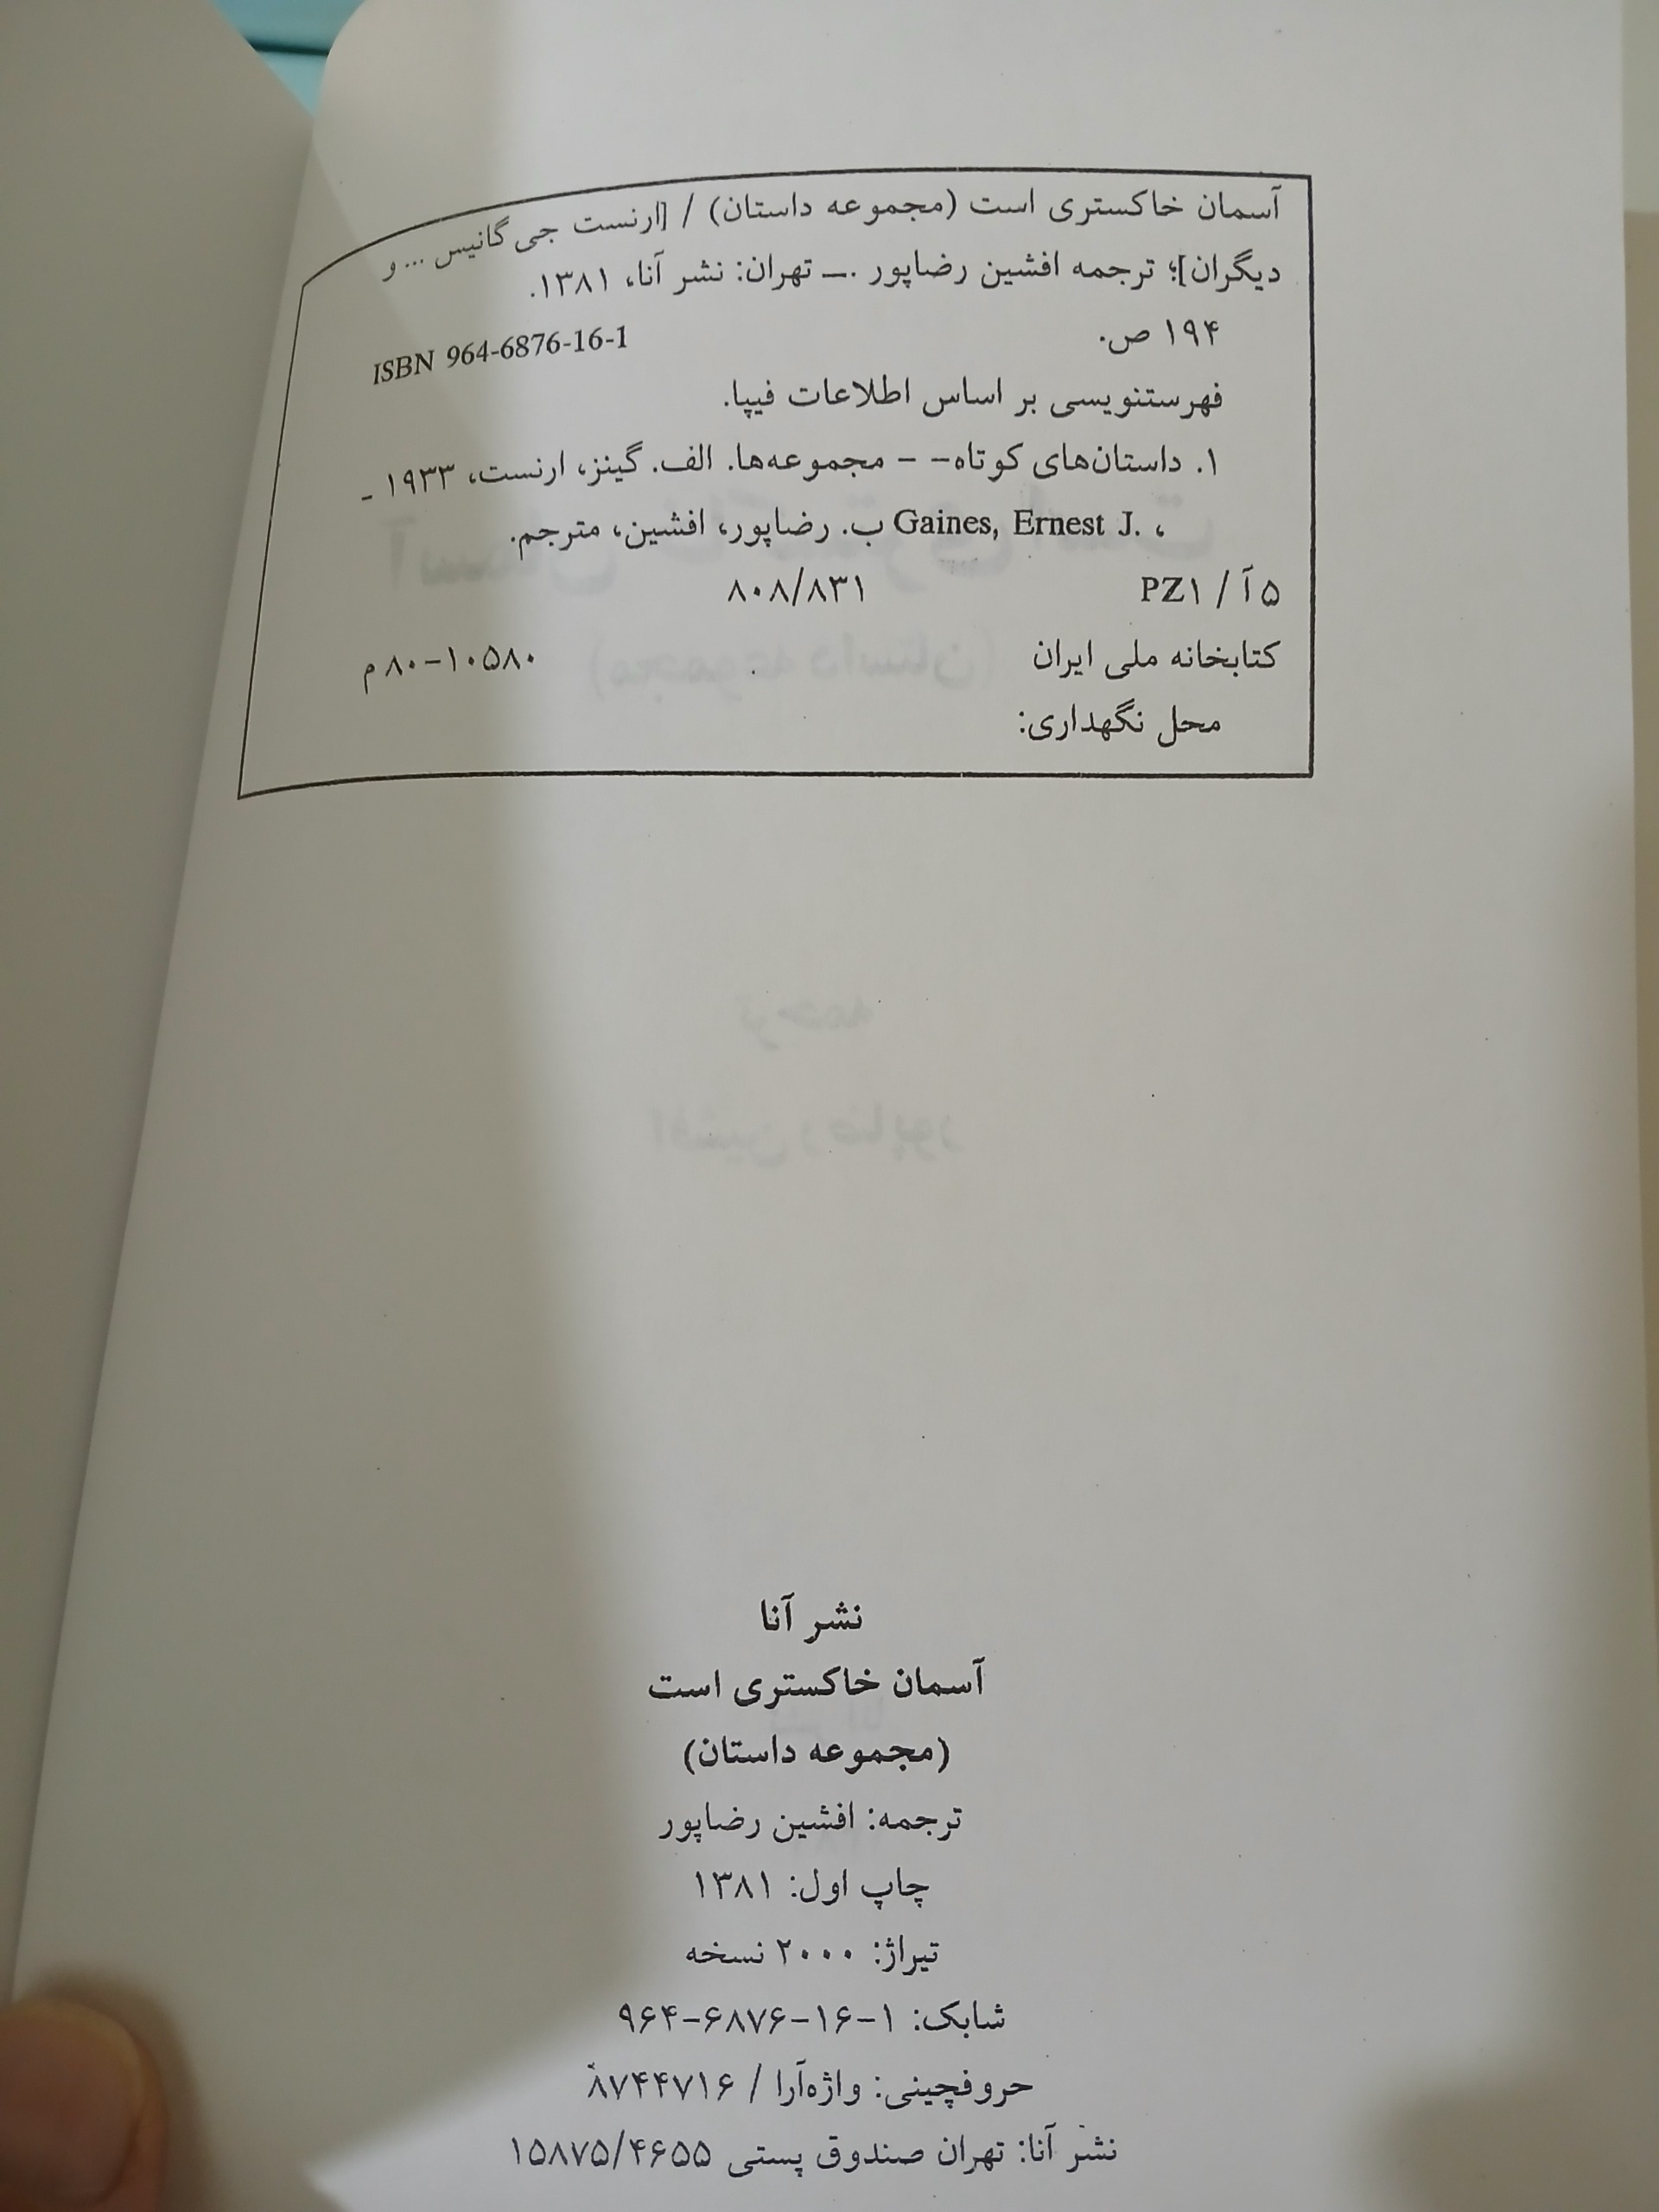 آسمان خاکستری است (مجموعه داستان) / [ارنست جی گانیس ... و
دیگران]؛ ترجمه افشین رضاپور .ــ تهران: نشر آنا، ۱۳۸۱.
۱۹۴ ص. ISBN 964-6876-16-1
فهرستنویسی بر اساس اطلاعات فیپا.
۱. داستان‌های کوتاه-- مجموعه‌ها. الف. گینز، ارنست، ۱۹۳۳ ـ
، Gaines, Ernest J. ب. رضاپور، افشین، مترجم.
۵آ / PZ۱ ۸۰۸/۸۳۱
کتابخانه ملی ایران ۱۰۵۸۰-۸۰م
محل نگهداری:
نشر آنا
آسمان خاکستری است
(مجموعه داستان)
ترجمه: افشین رضاپور
چاپ اول: ۱۳۸۱
تیراژ: ۲۰۰۰ نسخه
شابک: ۱-۱۶-۶۸۷۶-۹۶۴
حروفچینی: واژه‌آرا / ۸۷۴۴۷۱۶
نشر آنا: تهران صندوق پستی ۱۵۸۷۵/۴۶۵۵